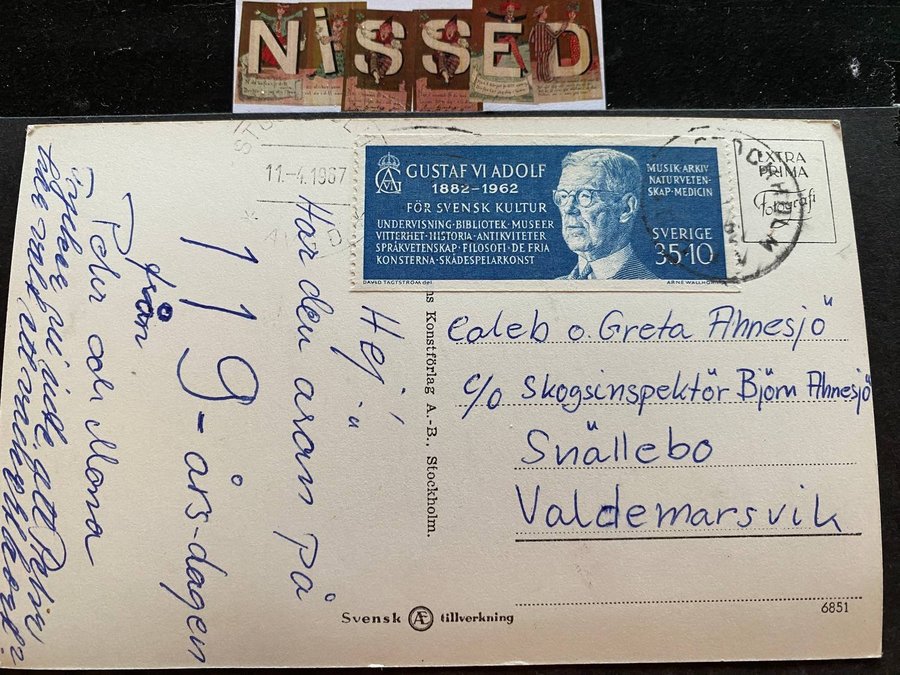 NISSED
11.-4.1967
GUSTAF VI ADOLF
1882-1962
FÖR SVENSK KULTUR
UNDERVISNING·BIBLIOTEK·MUSEER
VITTERHET·HISTORIA·ANTIKVITETER
SPRÅKVETENSKAP·FILOSOFI·DE FRIA
KONSTERNA·SKÅDESPELARKONST
MUSIK·ARKIV
NATURVETEN-
SKAP·MEDICIN
SVERIGE
35+10
DAVID TÄGTSTRÖM del.
STOCKHOLM
EXTRA
PRIMA
Fotografi
Hej!
Har den äran på
119-års-dagen
från
Pehr och Mona
Tycker ni inte att Pehr
valt ett vackert
Konstförlag A.-B., Stockholm.
Caleb o. Greta Ahnesjö
c/o Skogsinspektör Björn Ahnesjö
Snällebo
Valdemarsvik
Svensk Æ tillverkning
6851